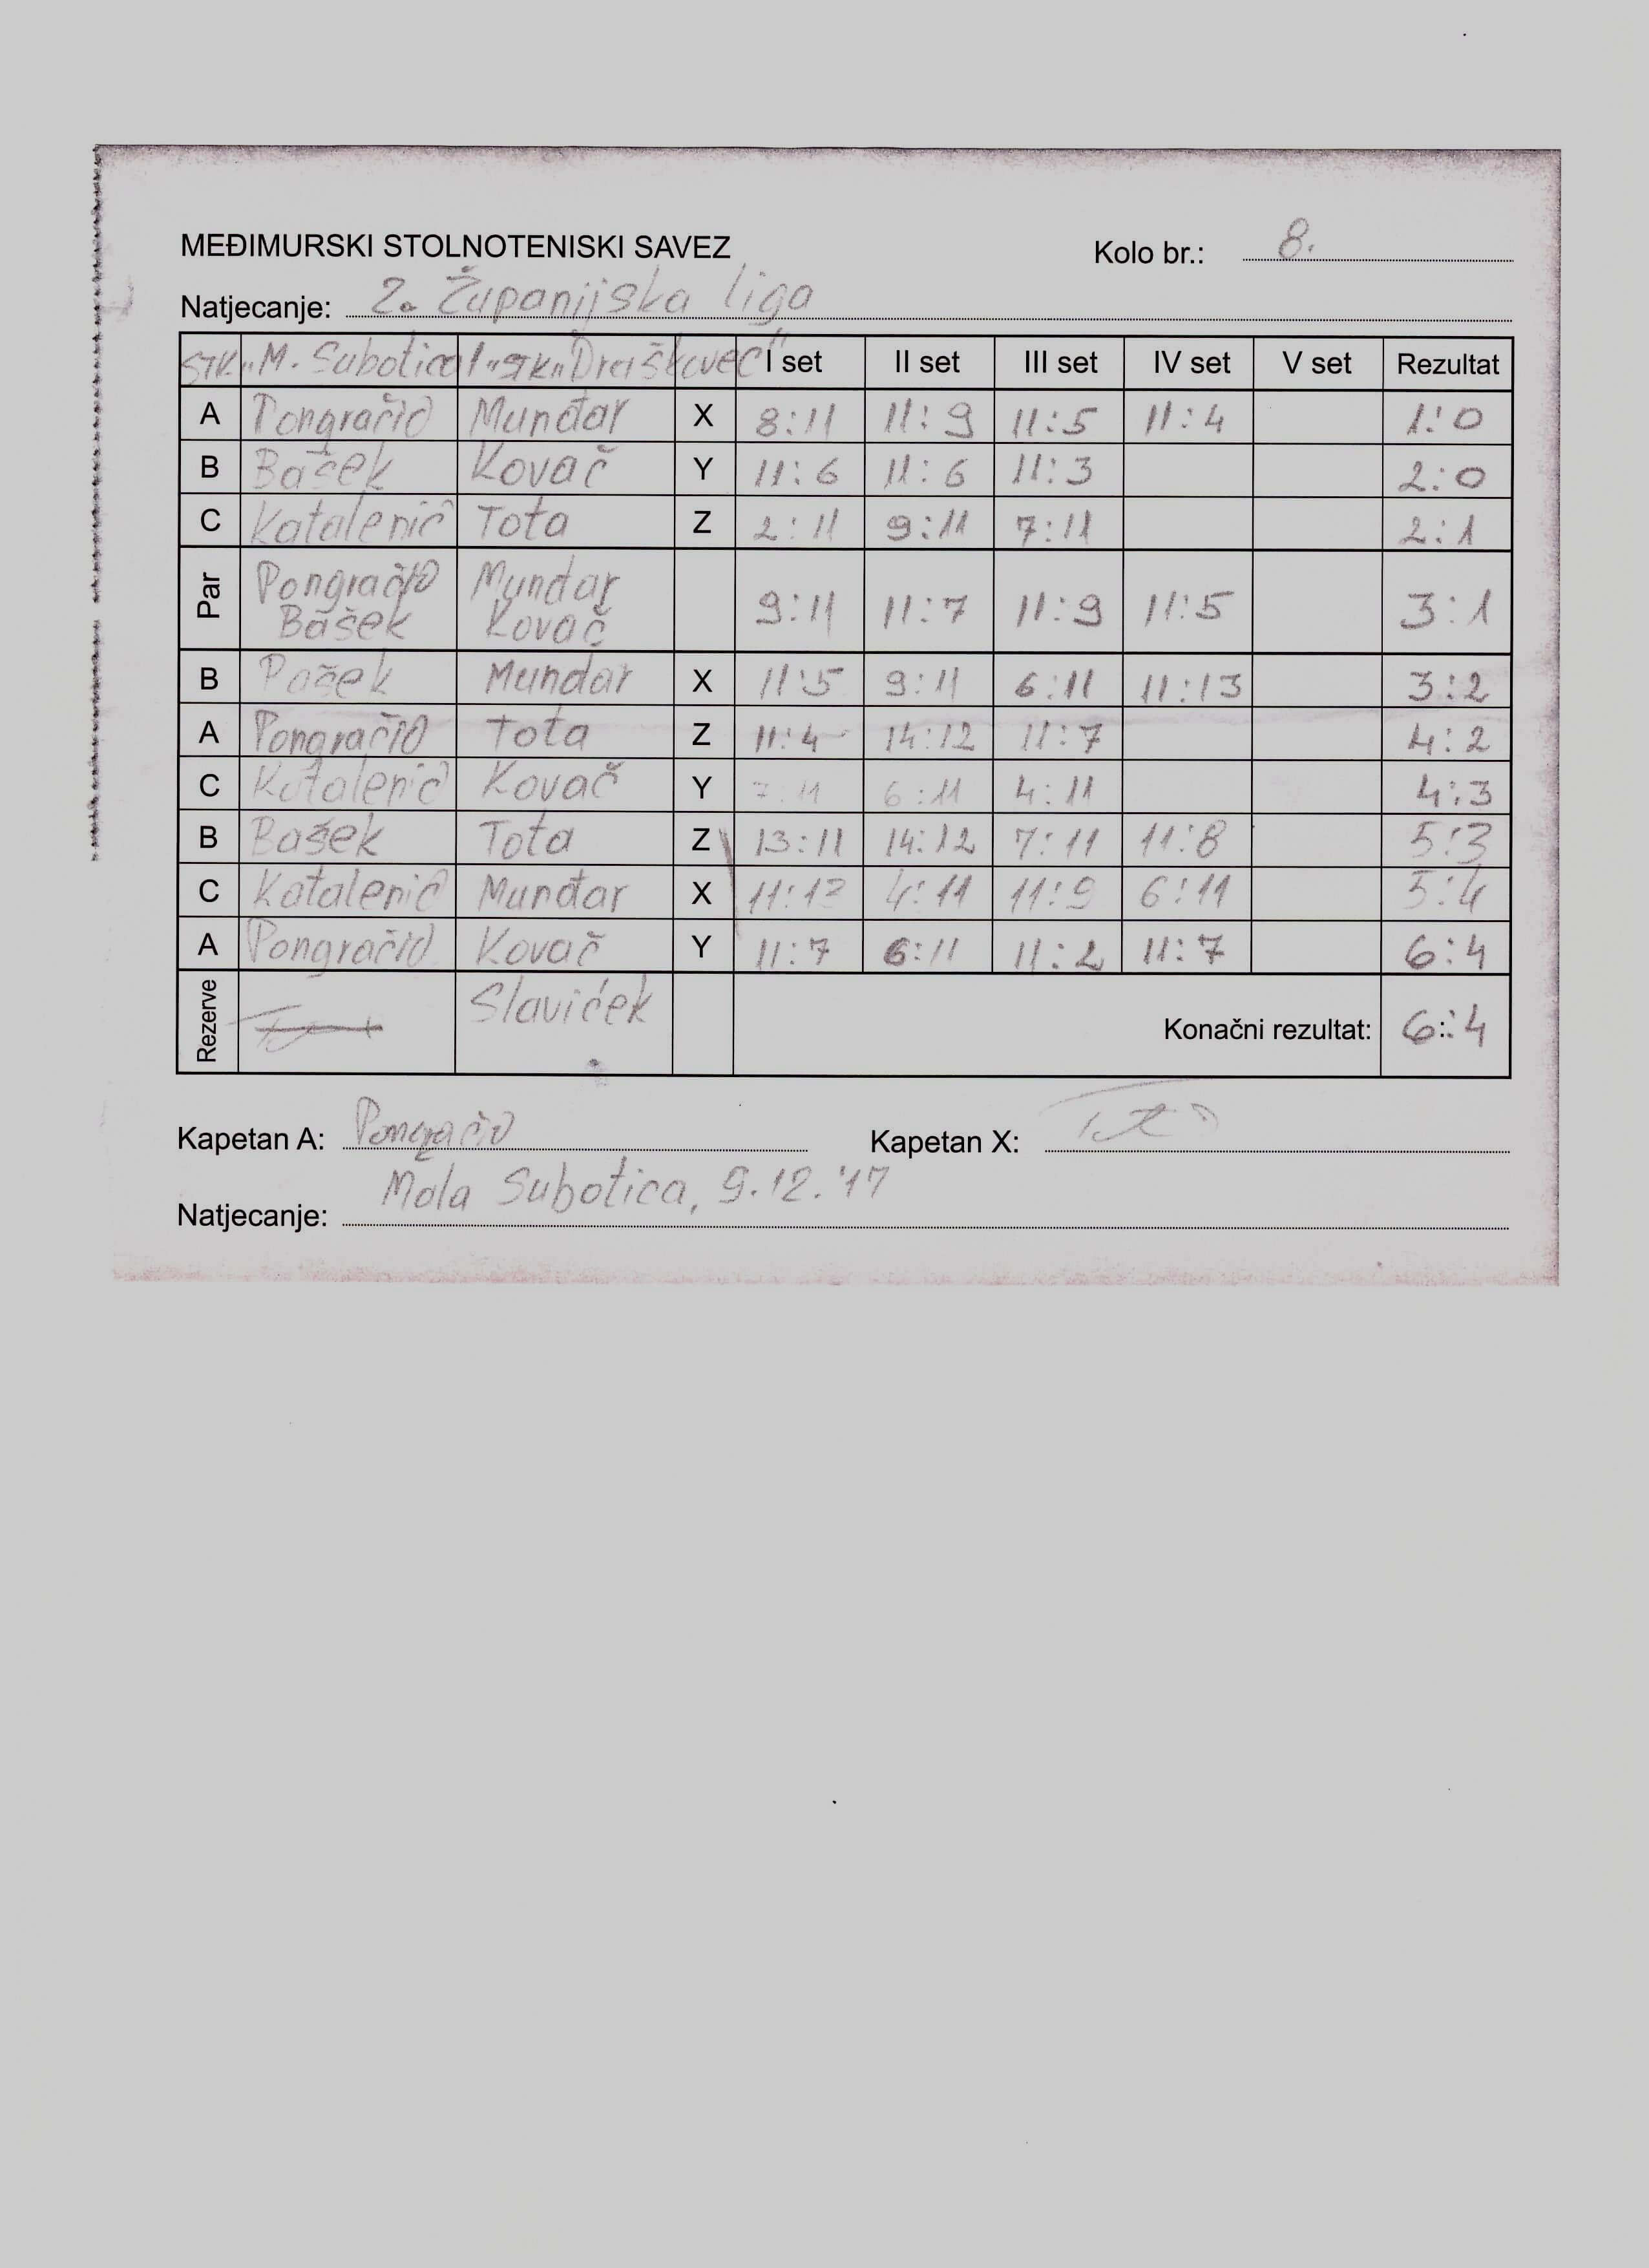 MEĐIMURSKI STOLNOTENISKI SAVEZ Kolo br.: 8.
Natjecanje: 2. Županijska liga
STK „M. Subotica" STK „Draškovec" I set II set III set IV set V set Rezultat
A Pongračić Munđar X 8:11 11:9 11:5 11:4 1:0
B Bašek Kovač Y 11:6 11:6 11:3 2:0
C Katalenić Tota Z 2:11 9:11 7:11 2:1
Par Pongračić Munđar 9:11 11:7 11:9 11:5 3:1
Bašek Kovač
B Bašek Munđar X 11:5 9:11 6:11 11:13 3:2
A Pongračić Tota Z 11:4 14:12 11:7 4:2
C Katalenić Kovač Y 7:11 6:11 4:11 4:3
B Bašek Tota Z 13:11 14:12 7:11 11:8 5:3
C Katalenić Munđar X 4:11 11:9 6:11 5:4
A Pongračić Kovač Y 11:7 6:11 11:2 11:7 6:4
Rezerve Slaviček Konačni rezultat: 6:4
Kapetan A: Pongračić Kapetan X:
Mala Subotica, 9.12.'17
Natjecanje: